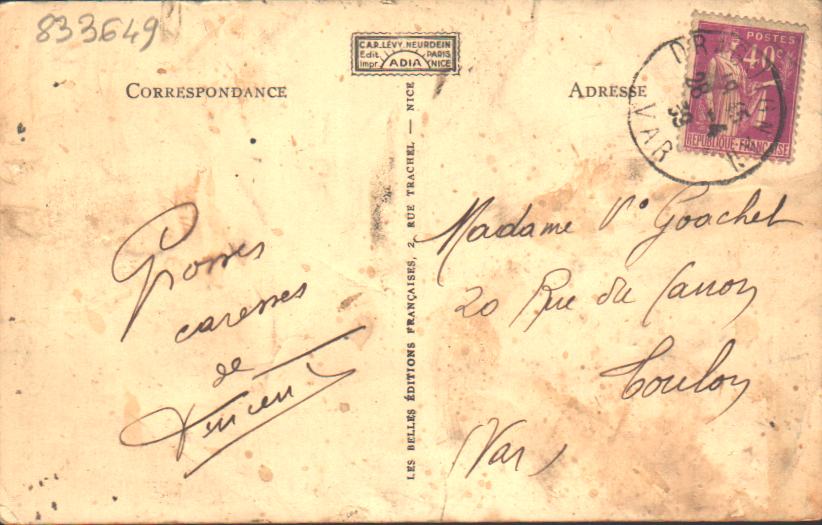 833649
C.A.P. LÉVY. NEURDEIN
Edit. PARIS
Impr. ADIA NICE
CORRESPONDANCE
ADRESSE
POSTES
40c
REPUBLIQUE-FRANÇAISE
VAR
28
39
LES BELLES ÉDITIONS FRANÇAISES, 2, RUE TRACHEL — NICE
Grosses
caresses
de
Vincent
Madame Ve Goachet
20 Rue du Canon
Toulon
(Var)